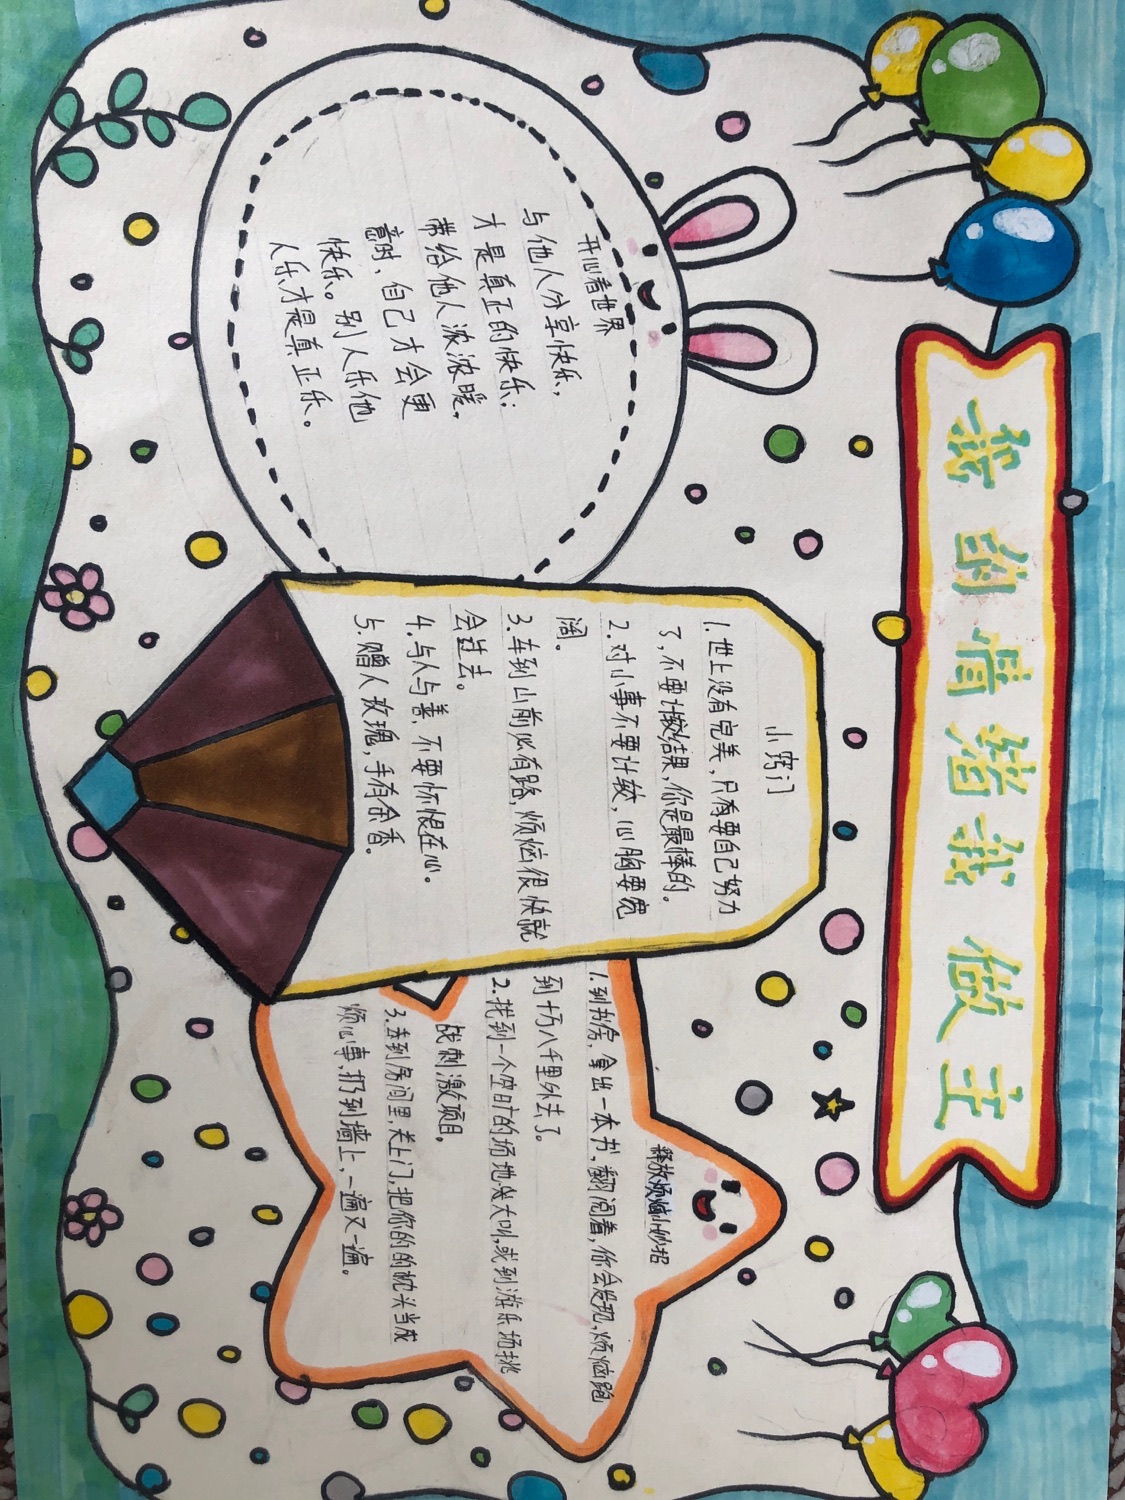 我的情绪我做主
开心看世界
与他人分享快乐,
才是真正的快乐;
带给他人浓浓暖,
意时、自己才会更
快乐。别人乐他
人乐才是真正乐。
小窍门
1.世上没有完美,只有要自己努力
了,不要计较结果,你是最棒的。
2.对小事不要计较,心胸要宽
阔。
3.车到山前必有路,烦恼很快就
会过去。
4.与人与善,不要怀恨在心。
5.赠人玫瑰,手有余香。
释放烦恼小妙招
1.到书房,拿出一本书,翻阅着,你会发现,烦恼跑
到十万八千里外去了。
2.找到一个空旷的场地尖大叫,或到游乐场挑
战刺激项目。
3.走到房间里,关上门,把你的的枕头当成
烦心事,扔到墙上,一遍又一遍。